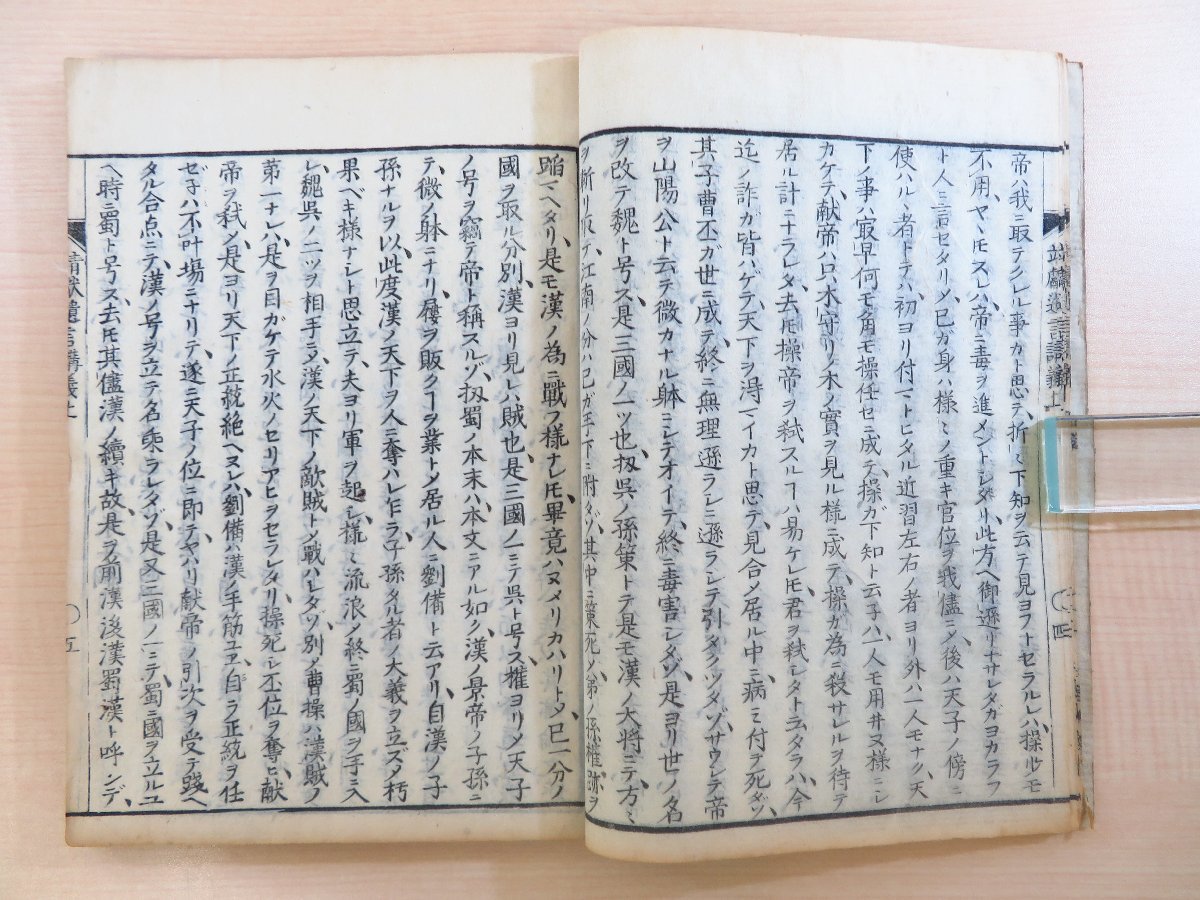 帝ハ我ニ取テクレル事カト思テ、折〻下知ヲ云テ見ヨフトセラルレハ、操少モ
不用、ヤヽモスレハ帝ニ毒ヲ進メントシタリ、此方ヘ御遜リナサレタガヨカラフ
ト人ニ言セタリメ、已ガ身ハ様〻ノ重キ官位ヲ我儘ニメ、後ハ天子ノ傍ニ
使ハルヽ者トテハ、初ヨリ付マトヒタル近習左右ノ者ヨリ外ハ一人モナク、天
下ノ事ハ最早何モ角モ操任セニ成テ、操ガ下知ト云子ハ一人モ用井ヌ様ニシ
カケテ、献帝ハ只木守リノ木ノ實ヲ見ル様ニ成テ、操ガ為ニ殺サレルヲ待テ
居ル計ニナラレタ、去𪜈操帝ヲ弑スルヿハ易ケレ𪜈、君ヲ弑シタト云タラハ、今
迄ノ詐カ皆バゲテ、天下ヲ得マイカト思テ、見合メ居ル中ニ、病ミ付ヲ死ダゾ、
其子曹丕ガ世ニ成テ、終ニ無理遜ラシニ遜ラシテ引タクツタゾ、サウシテ帝
ヲ山陽公ト云テ、微カナル躰ミシテオイテ、終ニ毒害シタゾ、是ヨリ世ノ名
ヲ改テ魏ト号ス、是三國ノ一ツ也、扨呉ノ孫策トテ、是モ漢ノ大将ニテ、方〻
ヲ斬リ取テ、江南ノ分ハ已ガ手下ニ附タゾ、其中ニ策死ノ、弟ノ孫權跡ヲ
蹈マヘタリ、是モ漢ノ為ニ戰フ様ナレ𪜈、畢竟ハヌメリカハリトメ、已一分ノ
國ヲ取ル分別、漢ヨリ見レハ賊也、是三國ノ一ニテ呉ト号ス、權ヨリメ天子
ノ号ヲ竊テ帝ト稱スルゾ、扨蜀ノ本末ハ、本文ニアル如ク、漢ノ景帝ノ子孫ニ
テ、微ノ躰ニナリ、屨ヲ販クヿヲ業トメ居ル人ニ劉備ト云アリ、自漢ノ子
孫ナルヲ以、此度漢ノ天下ヲ人ニ奪ハレ乍ラ、子孫タル者ノ大義ヲ立ズメ朽
果ベキ様ナシト思立テ、夫ヨリ軍ヲ起シ、様〻ニ流浪ノ終ニ蜀ノ國ヲ手ニ入
レ、魏呉ノ二ツヲ相手ニメ、漢ノ天下ノ敵賊トメ戰ハレタゾ、別メ曹操ハ漢賊ノ
第一ナレハ、是ヲ目ガケテ水火ノセリアヒヲセラレタリ、操死シ丕位ヲ奪ヒ、献
帝ヲ弑メ、是ヨリ天下ノ正統絶ヘヌレハ、劉備ハ漢ノ手筋ユヱ、自ラ正統ヲ任
ゼ子ハ不叶場ニナリテ、遂ニ天子ノ位ニ即テヤハリ献帝ノ引次ヲ受テ踐ヘ
タル合点ニテ、漢ノ号ヲ立テ名乘ラレタゾ、是又三國ノ一ニテ、蜀ニ國ヲ立ルユ
ヘ、時ニ蜀ト号ス、去𪜈其儘漢ノ續キ故、是ヲ前漢後漢蜀漢ト呼ンデ、
靖献遺言講義上
〇五